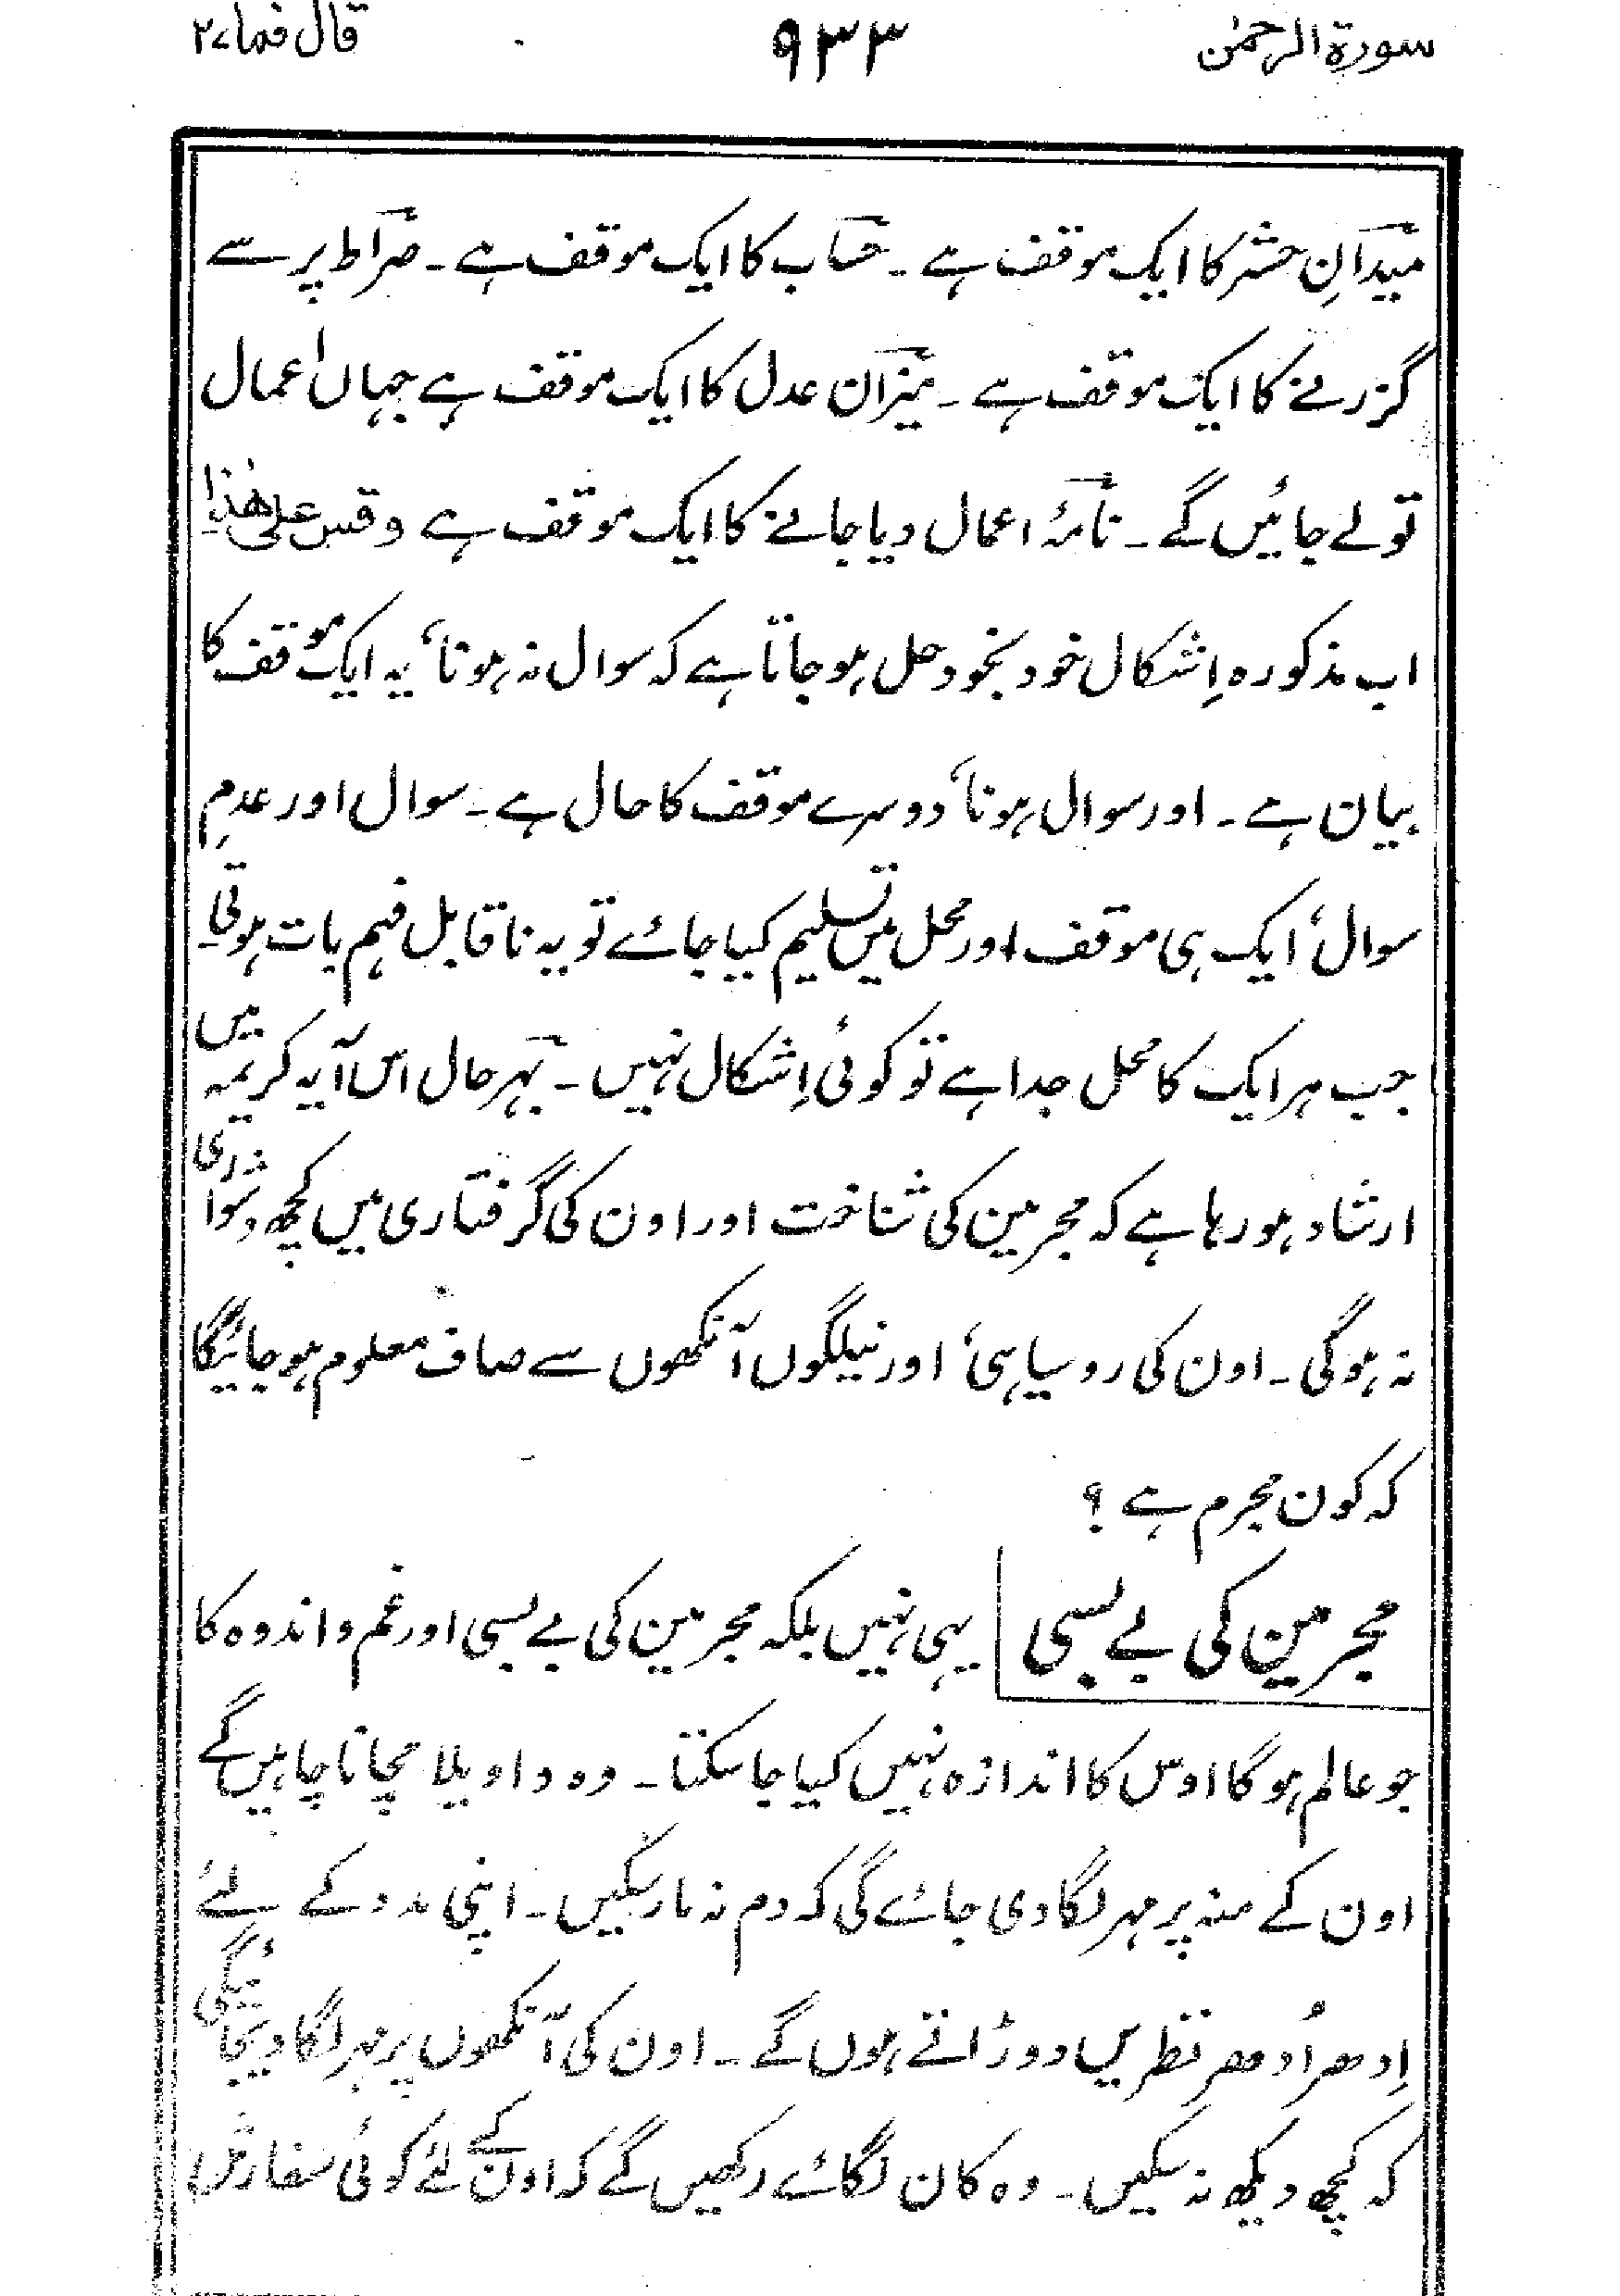 سورۃ الرحمٰن ۹۳۳ قال فما ۲۷
میدانِ حشر کا ایک موقف ہے ۔ حساب کا ایک موقف ہے ۔ صراط پر سے
گزرنے کا ایک موقف ہے ۔ میزان عدل کا ایک موقف ہے جہاں اعمال
تولے جائیں گے ۔ نامۂ اعمال دیا جانے کا ایک موقف ہے وقس علیٰ ھٰذا
اب مذکورہ اِشکال خود بخود حل ہو جاتا ہے کہ سوال نہ ہونا، یہ ایک موقف کا
بیان ہے ۔ اور سوال ہونا، دوسرے موقف کا حال ہے ۔ سوال اور عدمِ
سوال، ایک ہی موقف اور محل میں تسلیم کیا جائے تو یہ ناقابل فہم بات ہوتی
جب ہر ایک کا محل جدا ہے تو کوئی اِشکال نہیں ۔ بہر حال اس آیہ کریمہ میں
ارشاد ہو رہا ہے کہ مجرمین کی شناخت اور اون کی گرفتاری میں کچھ دشواری
نہ ہوگی ۔ اون کی رو سیاہی، اور نیلگوں آنکھوں سے صاف معلوم ہو جائیگا
کہ کون مجرم ہے ؟
مجرمین کی بے بسی یہی نہیں بلکہ مجرمین کی بے بسی اور غم و اندوہ کا
جو عالم ہوگا اوس کا اندازہ نہیں کیا جا سکتا ۔ وہ واویلا مچانا چاہیں گے
اون کے منہ پر مہر لگا دی جائے گی کہ دم نہ مار سکیں ۔ اپنی مدد کے لئے
اِدھر اُدھر نظریں دوڑاتے ہوں گے ۔ اون کی آنکھوں پر مہر لگا دیجائیگی
کہ کچھ دیکھ نہ سکیں ۔ وہ کان لگائے رکھیں گے کہ اون کے لئے کوئی سفارش